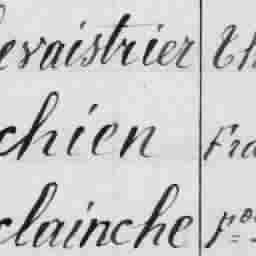 evaistrier Th
chien Fra
clainche Fois